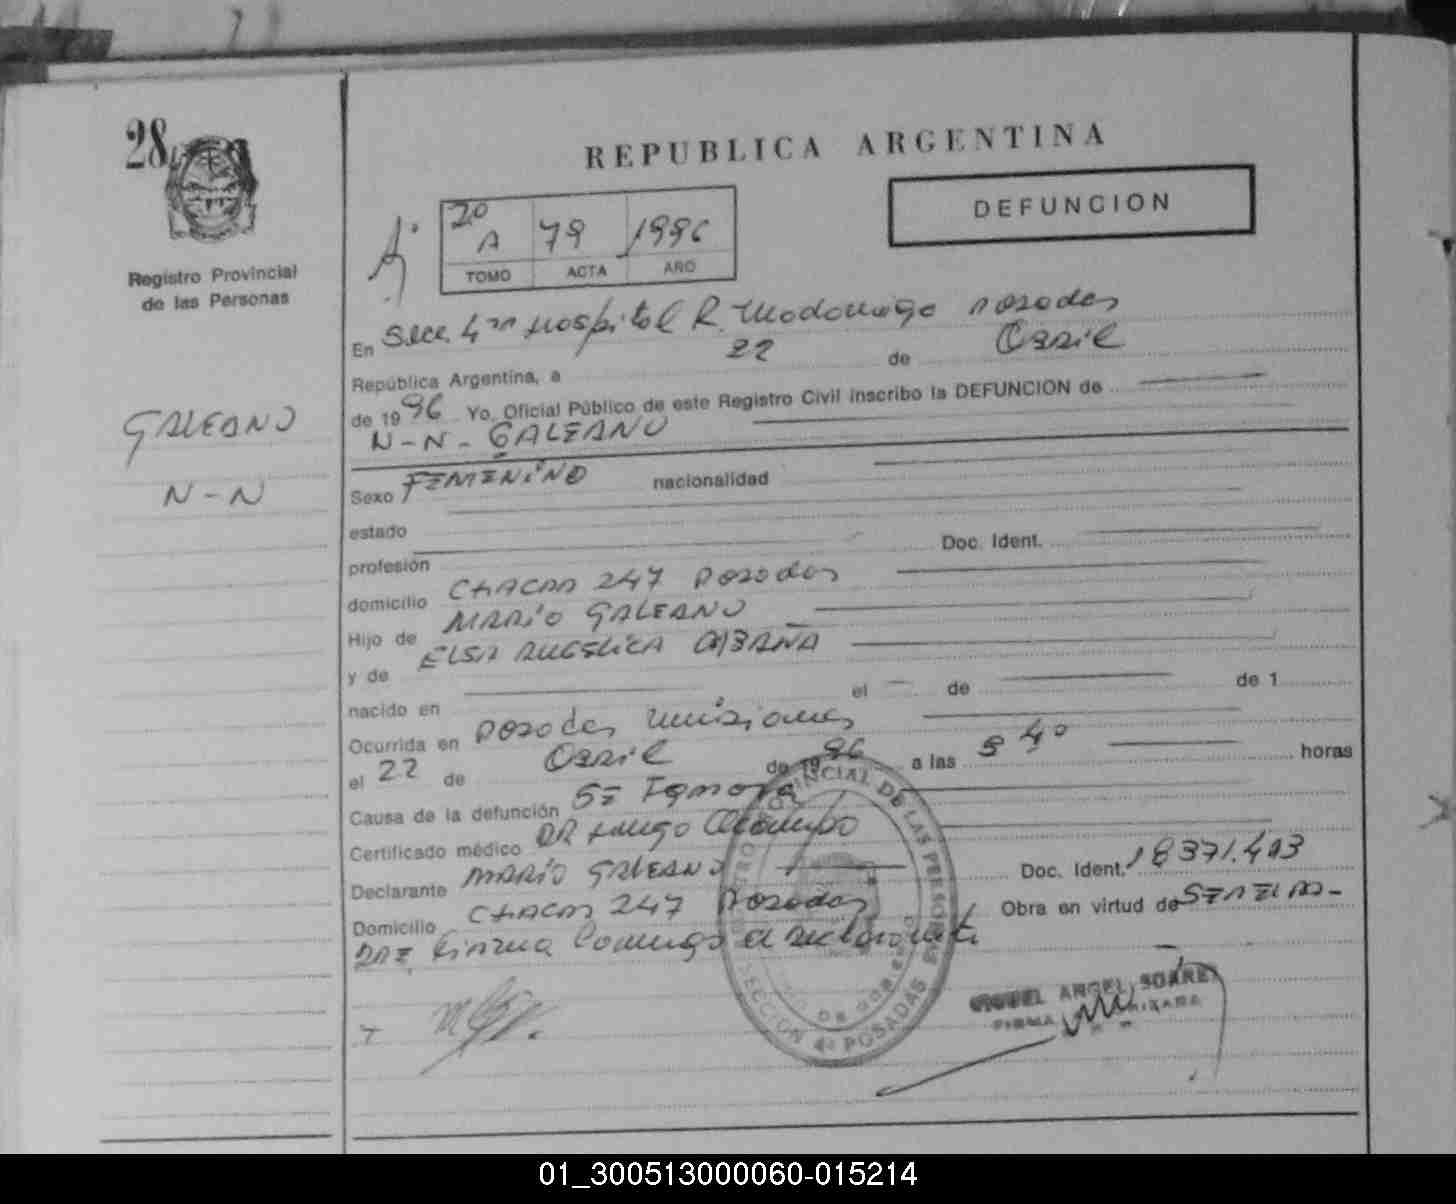 28
REPUBLICA ARGENTINA
DEFUNCION
2º A 79 1996
TOMO ACTA AÑO
Registro Provincial
de las Personas
GALEANO
N-N
En Secc 4ta Hospital R. Madariaga Posadas
República Argentina, a 22 de Abril
de 1996 Yo, Oficial Público de este Registro Civil inscribo la DEFUNCION de
N-N- GALEANO
Sexo FEMENINO nacionalidad
estado
profesión Doc. Ident.
domicilio CHACRA 247 Posadas
Hijo de MARIO GALEANO
y de ELSA ANGELICA
nacido en el de de 1
Ocurrida en Posadas Misiones
el 22 de Abril de 1996 a las 5 40 horas
Causa de la defunción SE Ignora
Certificado médico DR Hugo Ocampo
Declarante MARIO GALEANO Doc. Ident. 18371.413
Domicilio CHACRA 247 Posadas Obra en virtud de SER EL PA-
DRE firma Conmigo el declarante
REGISTRO PROVINCIAL DE LAS PERSONAS
SECCION 4ª POSADAS
MIGUEL ANGEL SOAREZ
FIRMA
01_300513000060-015214